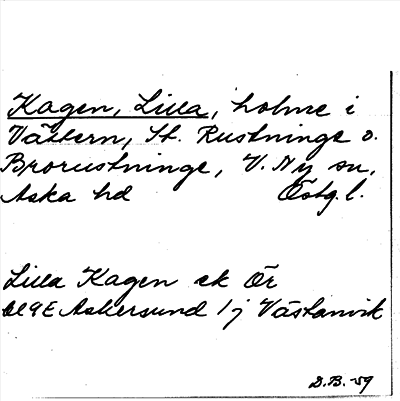 Kagen, Lilla, holme i
Vättern, St. Rustninge o.
Brorustninge, V. Ny sn,
Aska hd Östg. l.
Lilla Kagen ek Ör
bl 9E Askersund 1 j Västanvik
D.B. -59